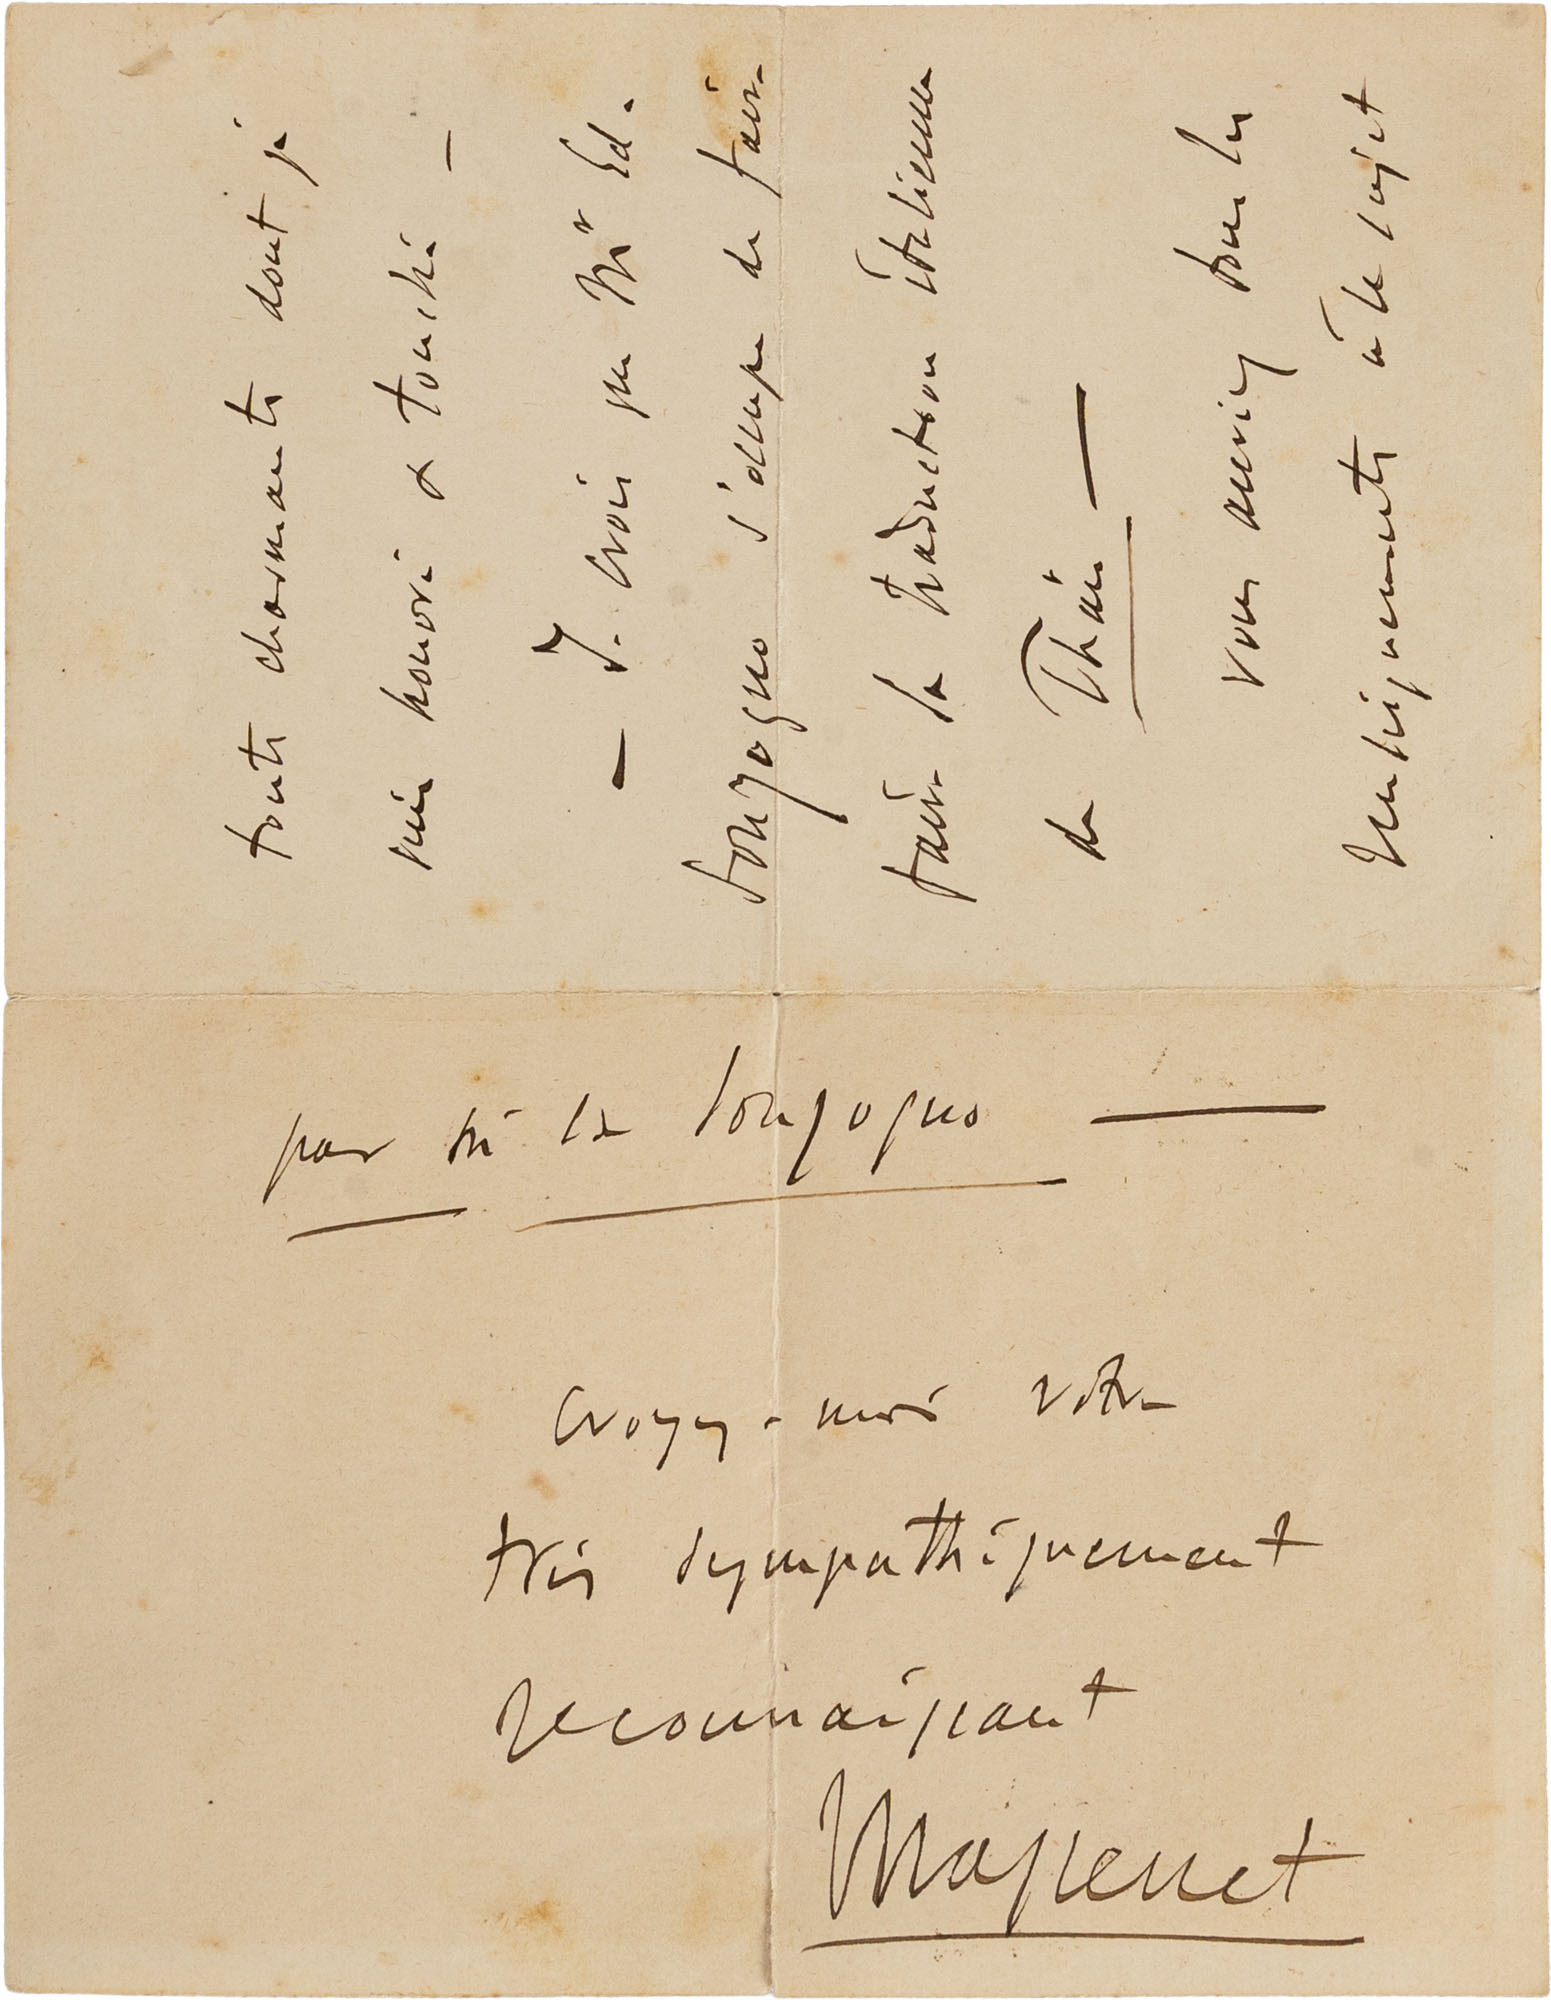 charmants dont je
suis honoré & touché —
— Je crois que Mr Ed.
Sonzogno s'occupe de faire
faire la traduction italienne
de Thaïs —
vous auriez tous les
renseignements à ce sujet
par Sonzogno —
Croyez-moi votre
très sympathiquement
reconnaissant
Massenet